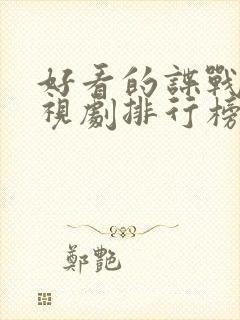 好看的諜戰
視劇排行榜
鄭艷